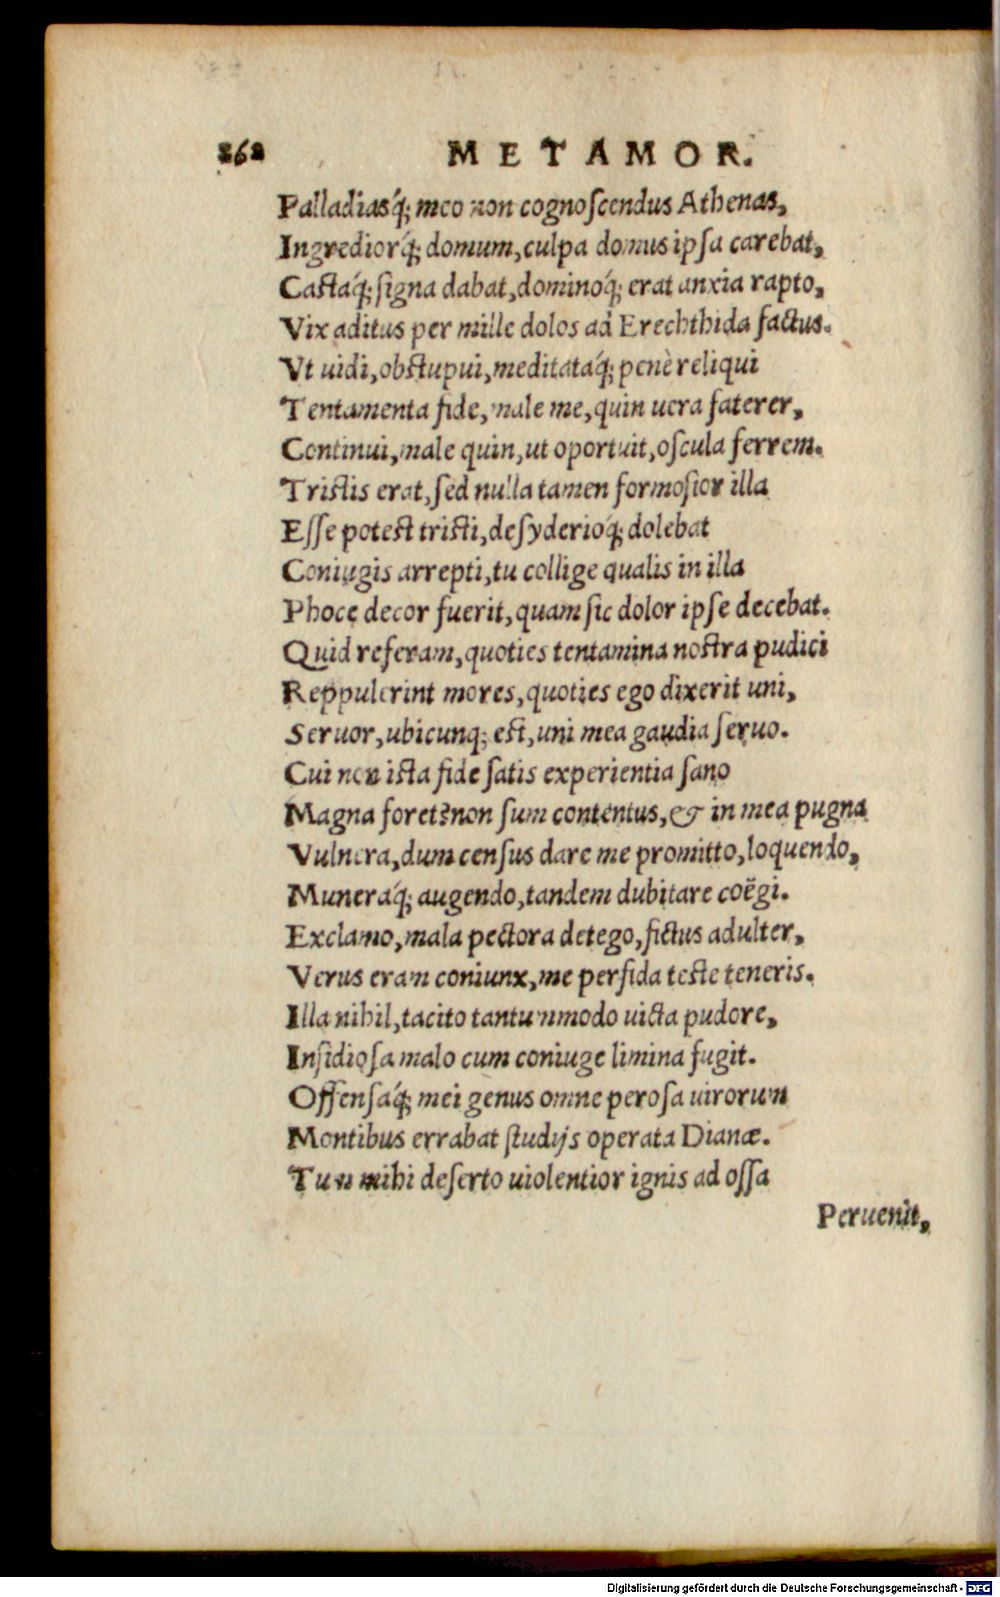 262 METAMOR.
Palladiasq́; meo non cognoſcendus Athenas,
Ingrediorq́; domum, culpa domus ipſa carebat,
Caſtaq́; ſigna dabat, dominoq́; erat anxia rapto,
Vix aditus per mille dolos ad Erechthida factus.
Vt uidi, obſtupui, meditataq́; penè reliqui
Tentamenta fide, male me, quin uera faterer,
Continui, male quin, ut oportuit, oſcula ferrem.
Triſtis erat, ſed nulla tamen formoſior illa
Eſſe poteſt triſti, deſyderioq́; dolebat
Coniugis arrepti, tu collige qualis in illa
Phoce decor fuerit, quam ſic dolor ipſe decebat.
Quid referam, quoties tentamina noſtra pudici
Reppulerint mores, quoties ego dixerit uni,
Seruor, ubicunq; eſt, uni mea gaudia ſeruo.
Cui non iſta fide ſatis experientia ſano
Magna foret? non ſum contentus, & in mea pugna
Vulnera, dum cenſus dare me promitto, loquendo,
Muneraq́; augendo, tandem dubitare coëgi.
Exclamo, mala pectora detego, fictus adulter,
Verus eram coniunx, me perfida teſte teneris.
Illa nihil, tacito tantummodo uicta pudore,
Inſidioſa malo cum coniuge limina fugit.
Offenſaq́; mei genus omne peroſa uirorum
Montibus errabat ſtudijs operata Dianæ.
Tum mihi deſerto uiolentior ignis ad oſſa
Peruenit,
Digitalisierung gefördert durch die Deutsche Forschungsgemeinschaft - DFG